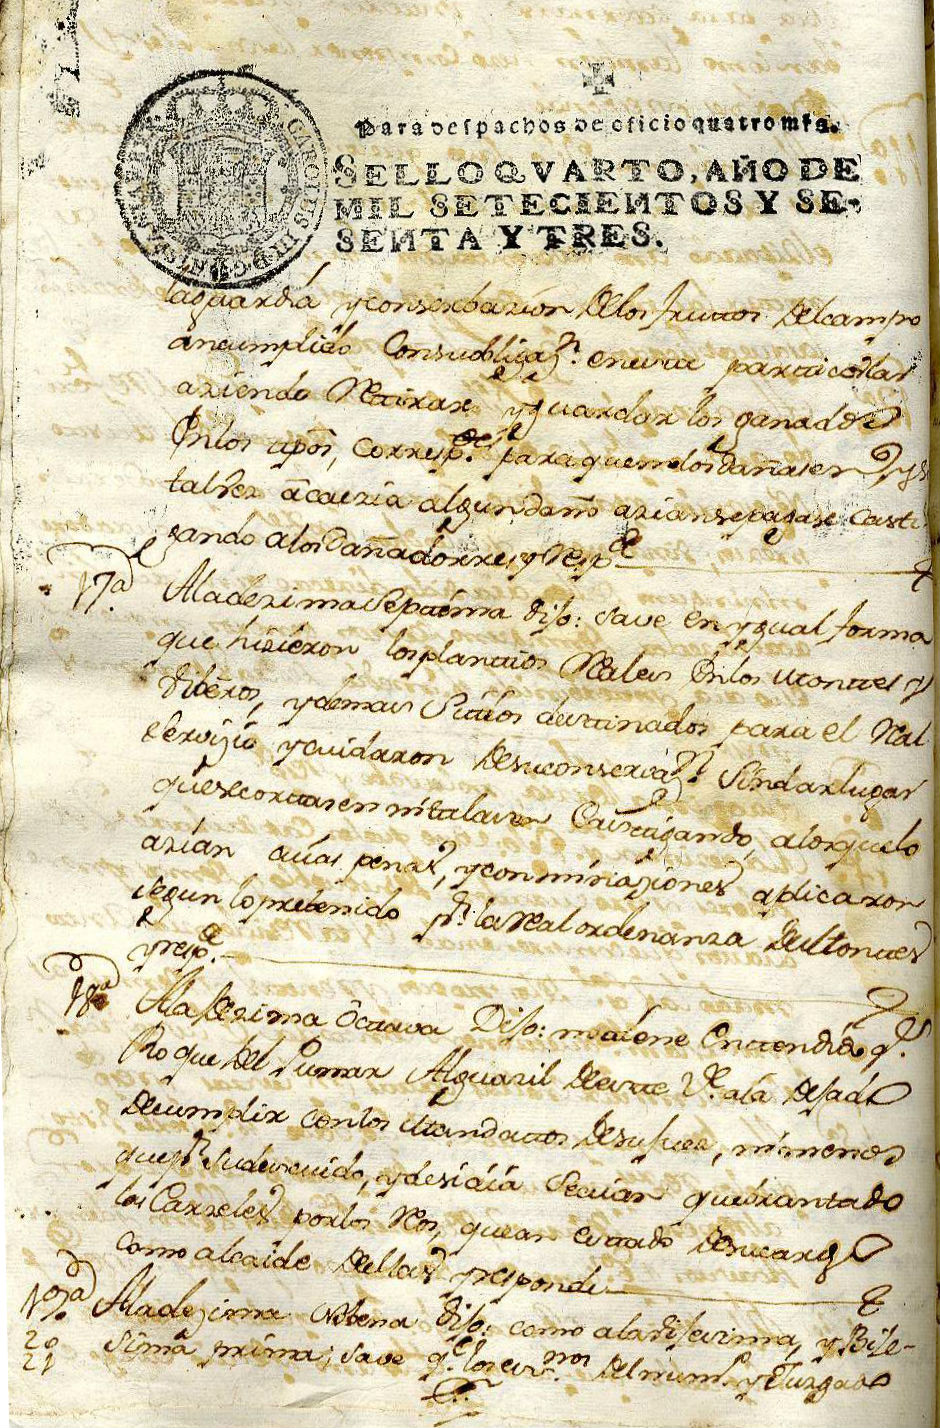 Para despachos de oficio quatro mrs.
SELLO QVARTO, AÑO DE
MIL SETECIENTOS Y SE-
SENTA Y TRES.
CAROLUS III D G HISPANIAR REX
la guardia y conserbazion de los frutos del campo
an cumplido con su obligazn. en esta particular
aziendo retirar y guardar los ganados
en los corresp.te para que no los dañasen y si
tal vez acaezia algun daño azian se pagase casti
gando a los dañadores y resp.de
17a
A la dezima septima dijo: save en ygual forma
que hizieron los plantios reales en los montes y
y demas sitios destinados para el real
servizio y cuidaron de su conservazn. sin dar lugar
que se cortasen ni talasen castigando, a los que lo
azian cuias penas, y conminaziones aplicaron
segun lo prebenido pr. la real ordenanza de Montes
y resp.de
18a
A la dezima octava dijo: no tiene entendido q.e
Roque del Pumar Alguazil de esta V.a aia dejado
de cumplir con los mandatos de su juez, ni menos
que pr. su descuido, y desidia se aian quebrantado
las Carzeles por los reos, que an estado de su cargo
como alcaide dellas y responde
19a
20
21
A la dezima nobena dijo: como a la dijesima, y bije-
sima prima; save q.e los essnos. del num.o y Juzgado